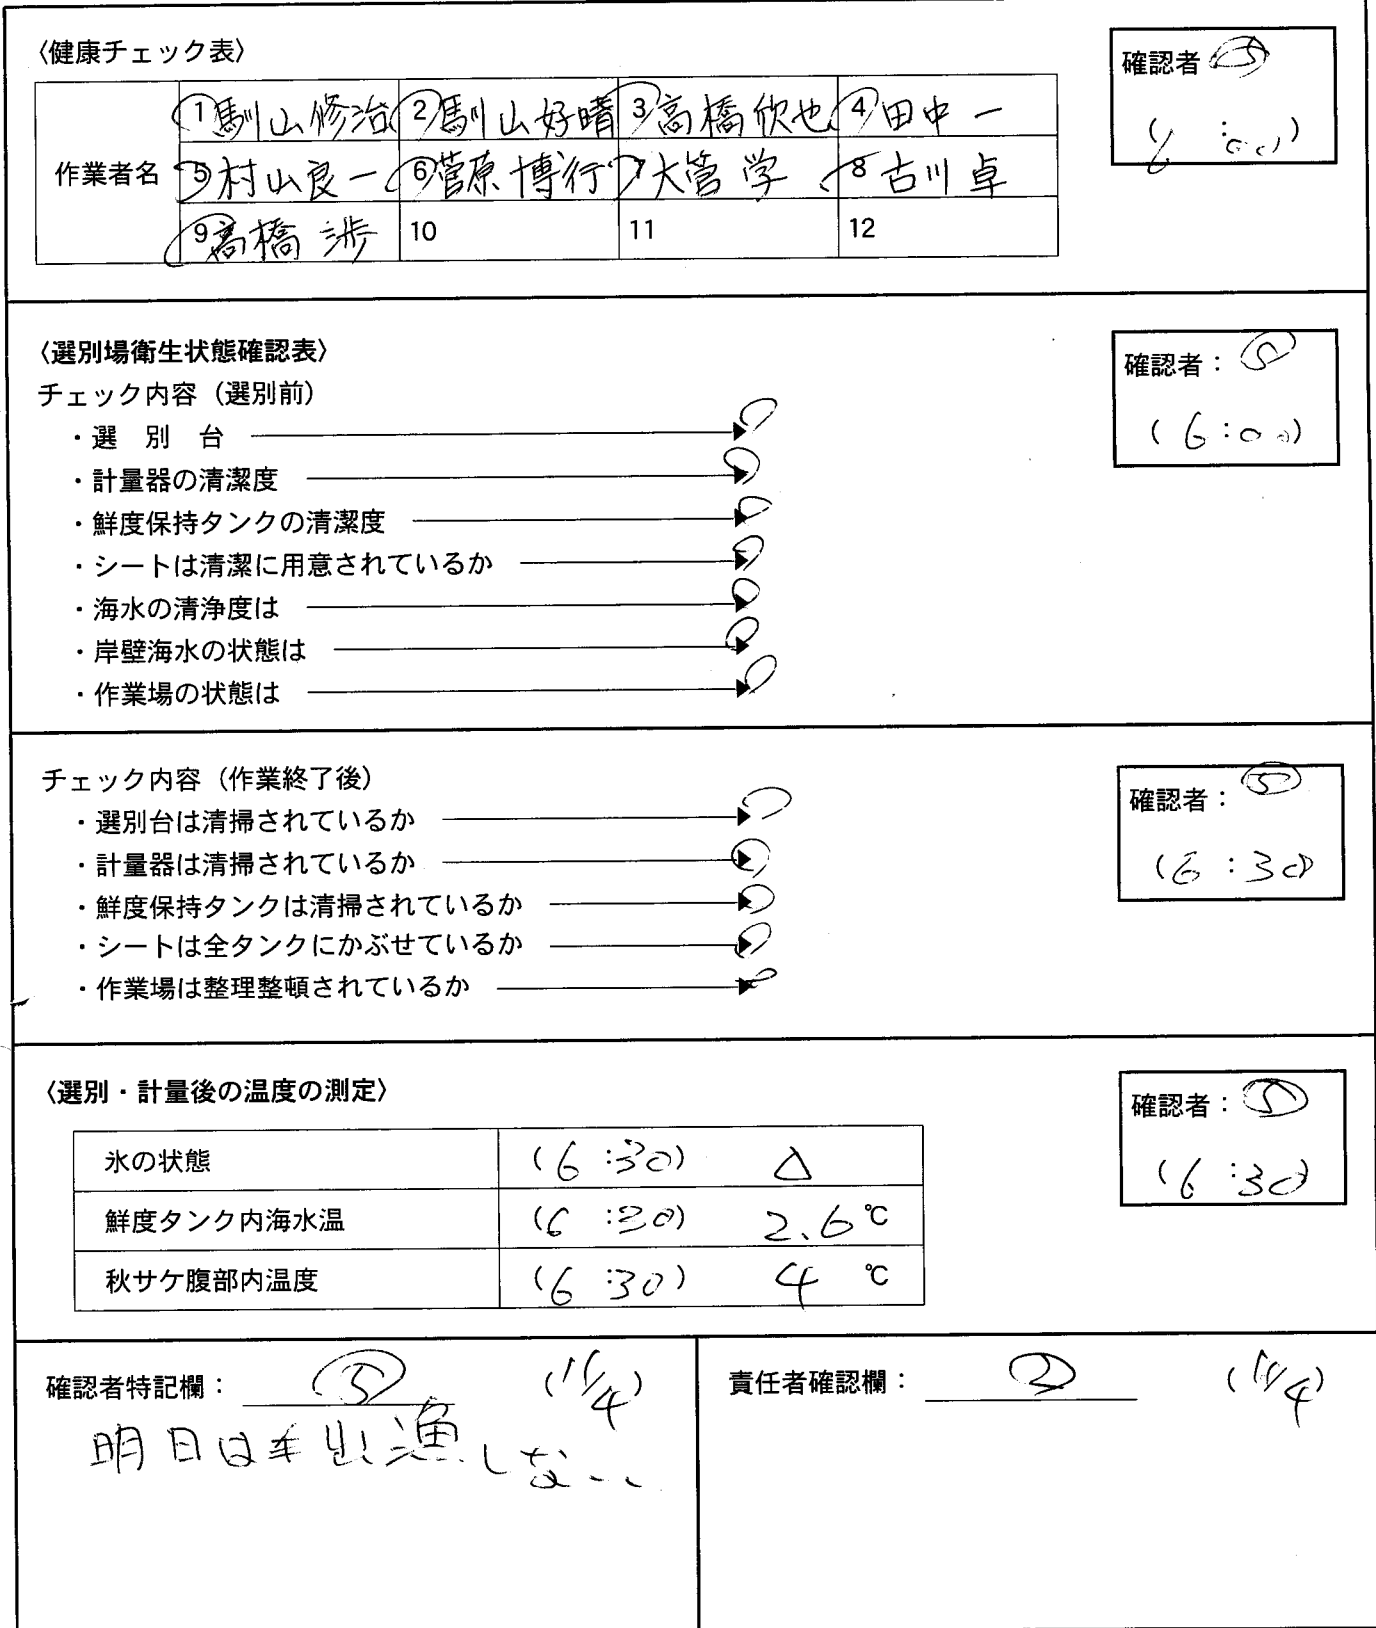 〈健康チェック表〉
確認者 ⑤
(6:00)
作業者名
①馴山修治 ②馴山好晴 ③高橋欣也 ④田中一
⑤村山良一 ⑥菅原博行 7大管学 8古川卓
⑨高橋渉 10 11 12
〈選別場衛生状態確認表〉
確認者：⑤
(6:00)
チェック内容（選別前）
・選別台
・計量器の清潔度
・鮮度保持タンクの清潔度
・シートは清潔に用意されているか
・海水の清浄度は
・岸壁海水の状態は
・作業場の状態は
チェック内容（作業終了後）
確認者：⑤
(6:30)
・選別台は清掃されているか
・計量器は清掃されているか
・鮮度保持タンクは清掃されているか
・シートは全タンクにかぶせているか
・作業場は整理整頓されているか
〈選別・計量後の温度の測定〉
確認者：⑤
(6:30)
氷の状態 (6:30) △
鮮度タンク内海水温 (6:30) 2.6℃
秋サケ腹部内温度 (6:30) 4℃
確認者特記欄：⑤ (11/4)
明日は出漁しない
責任者確認欄：② (11/4)